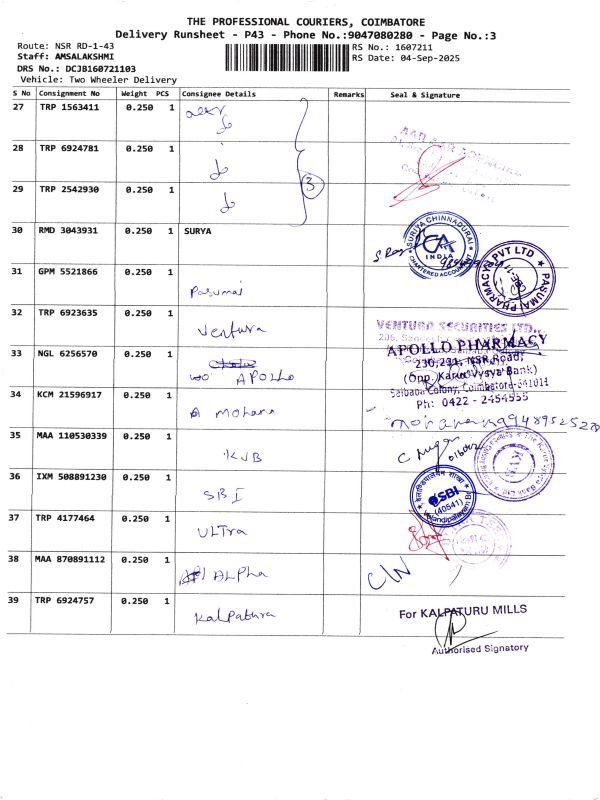 THE PROFESSIONAL COURIERS, COIMBATORE
Delivery Runsheet - P43 - Phone No.:9047080280 - Page No.:3
Route: NSR RD-1-43
RS No.: 1607211
Staff: AMSALAKSHMI
RS Date: 04-Sep-2025
DRS No.: DCJB160721103
Vehicle: Two Wheeler Delivery
S No Consignment No Weight PCS Consignee Details Remarks Seal & Signature
27 TRP 1563411 0.250 1
28 TRP 6924781 0.250 1
29 TRP 2542930 0.250 1
3
30 RMD 3043931 0.250 1 SURYA
SURIYA CHINNADURAI
CA
INDIA
CHARTERED ACCOUNTANT
31 GPM 5521866 0.250 1 Pasumai
PASUMAI PHARMACY PVT LTD
32 TRP 6923635 0.250 1 Ventura
VENTURA SECURITIES LTD.,
33 NGL 6256570 0.250 1 APOLLO
APOLLO PHARMACY
230,231, NSR Road,
(Opp. Karur Vysya Bank)
Saibaba Colony, Coimbatore-641011
Ph: 0422 - 2454555
34 KCM 21596917 0.250 1 Mohana
35 MAA 110530339 0.250 1 KVB
36 IXM 508891230 0.250 1 SBI
SBI
(40541)
37 TRP 4177464 0.250 1 ULTra
38 MAA 870891112 0.250 1 ALPha
39 TRP 6924757 0.250 1 Kalpatura
For KALPATURU MILLS
Authorised Signatory